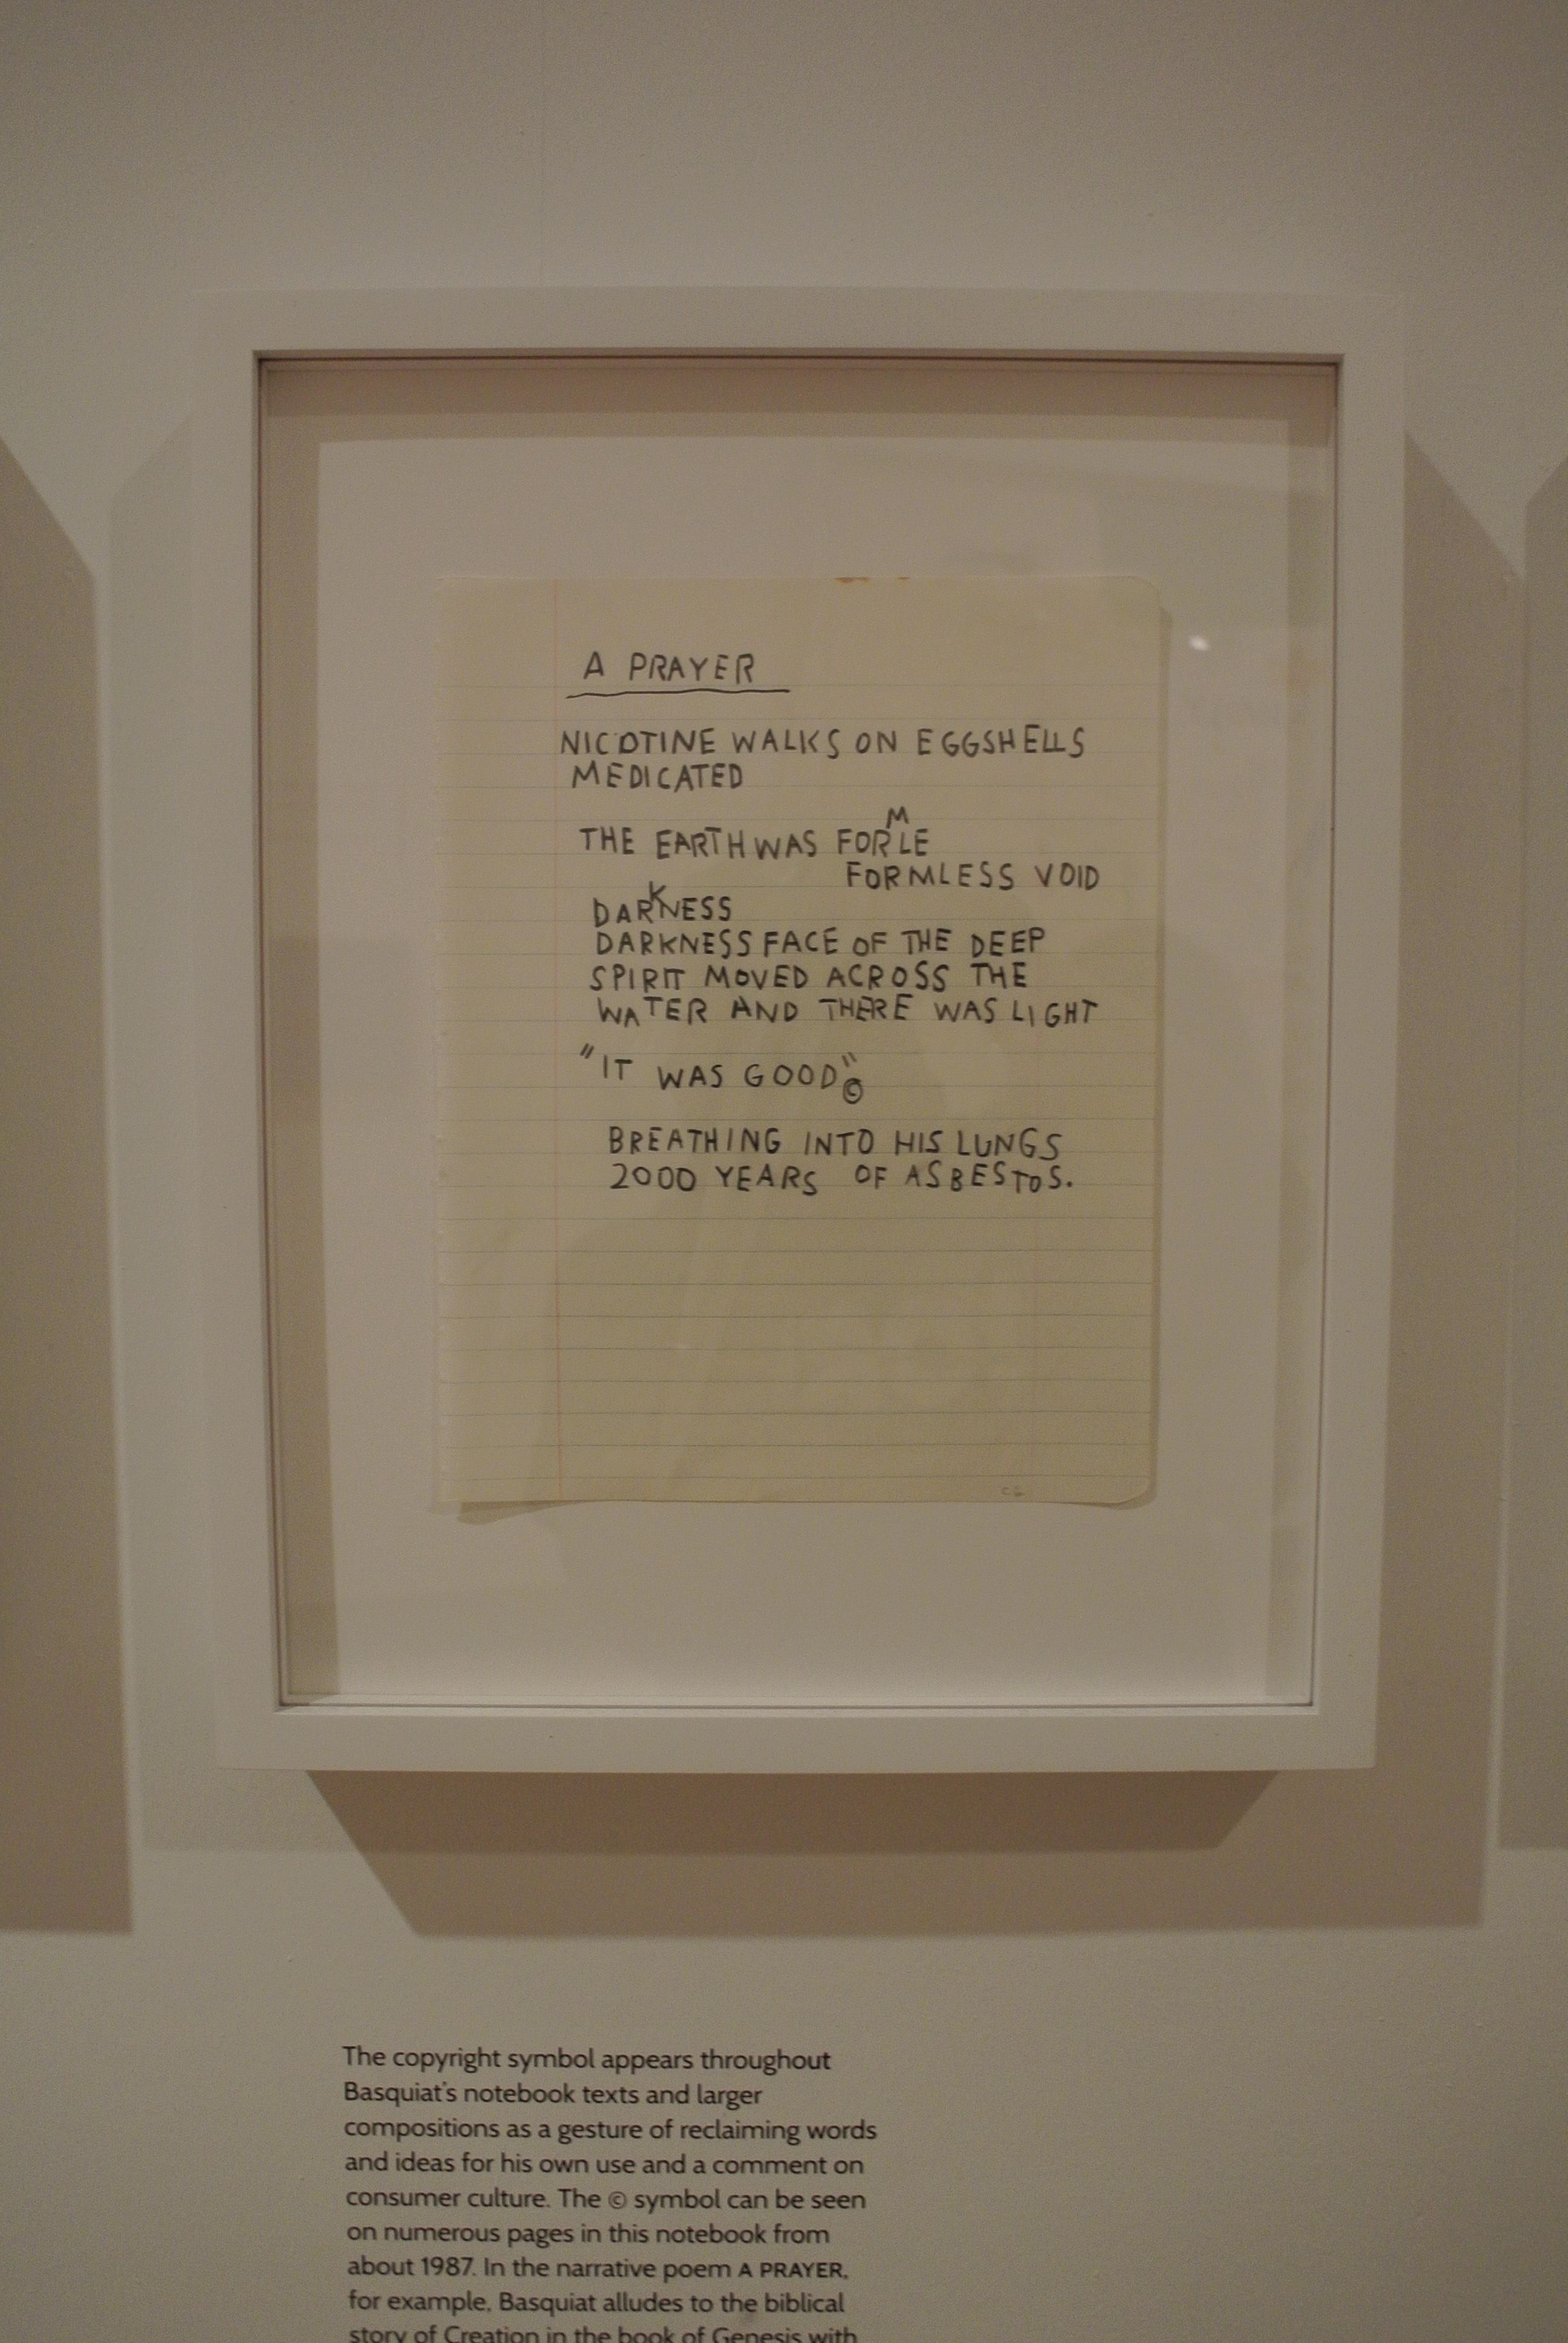 A PRAYER
NICOTINE WALKS ON EGGSHELLS
MEDICATED
THE EARTH WAS FORMLE
FORMLESS VOID
DARKNESS
DARKNESS FACE OF THE DEEP
SPIRIT MOVED ACROSS THE
WATER AND THERE WAS LIGHT
"IT WAS GOOD"©
BREATHING INTO HIS LUNGS
2000 YEARS OF ASBESTOS.
The copyright symbol appears throughout
Basquiat's notebook texts and larger
compositions as a gesture of reclaiming words
and ideas for his own use and a comment on
consumer culture. The © symbol can be seen
on numerous pages in this notebook from
about 1987. In the narrative poem A PRAYER,
for example, Basquiat alludes to the biblical
story of Creation in the book of Genesis with